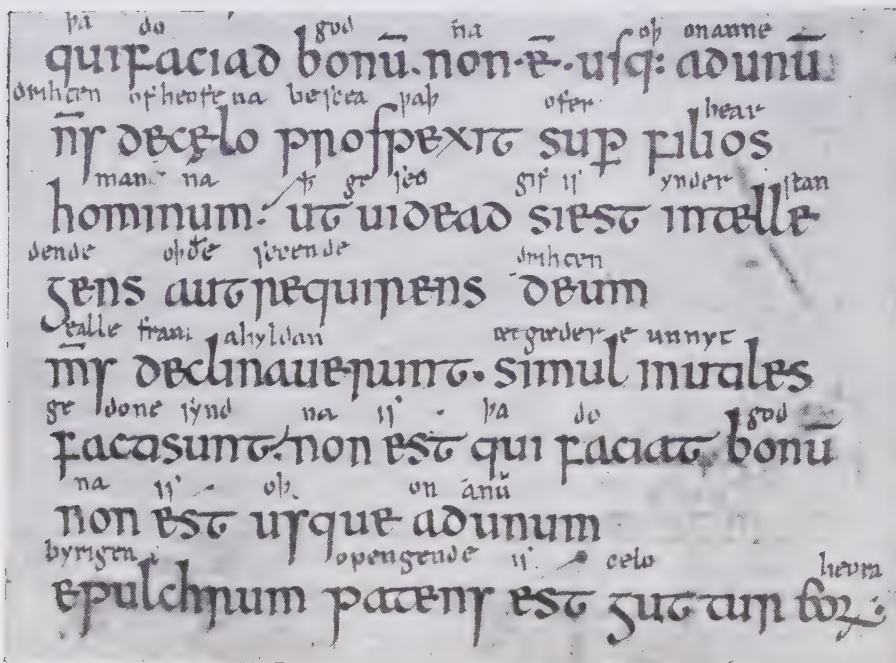 þa do god na oþ onanne
quifaciad bonū. non·ē·usq: adunū
drihcen ofheofena besceapaþ ofer bear
nꞅ decęlo prospexit suꝑ filios
man na ꝥ ge seo gif is ynder stan
hominum. ut uidead siest intelle
dende oþðe secende drihcen
gens aut requirens deum
ealle fram ahyldan ætgæder e unnyt
m̄s declinauerunt. simul inutiles
ge done synd na is þa do god
facti sunt. non est qui faciat bonū
na is oþ on anū
non est usque adunum
byrigen opengende is celo heora
epulchrum patens est guttur eorꝝ